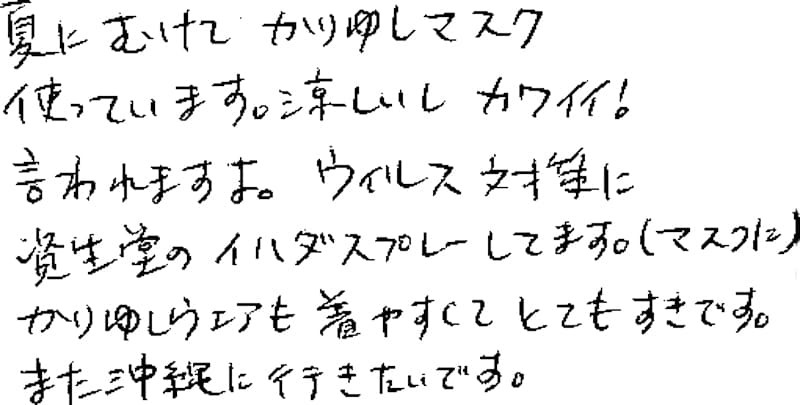 夏にむけて かりゆしマスク
使っています。涼しいし カワイイ!
言われますよ。 ウィルス対策に
資生堂の イハダスプレーしてます。(マスクに)
かりゆしウエアも 着やすくて とてもすきです。
また沖縄に行きたいです。